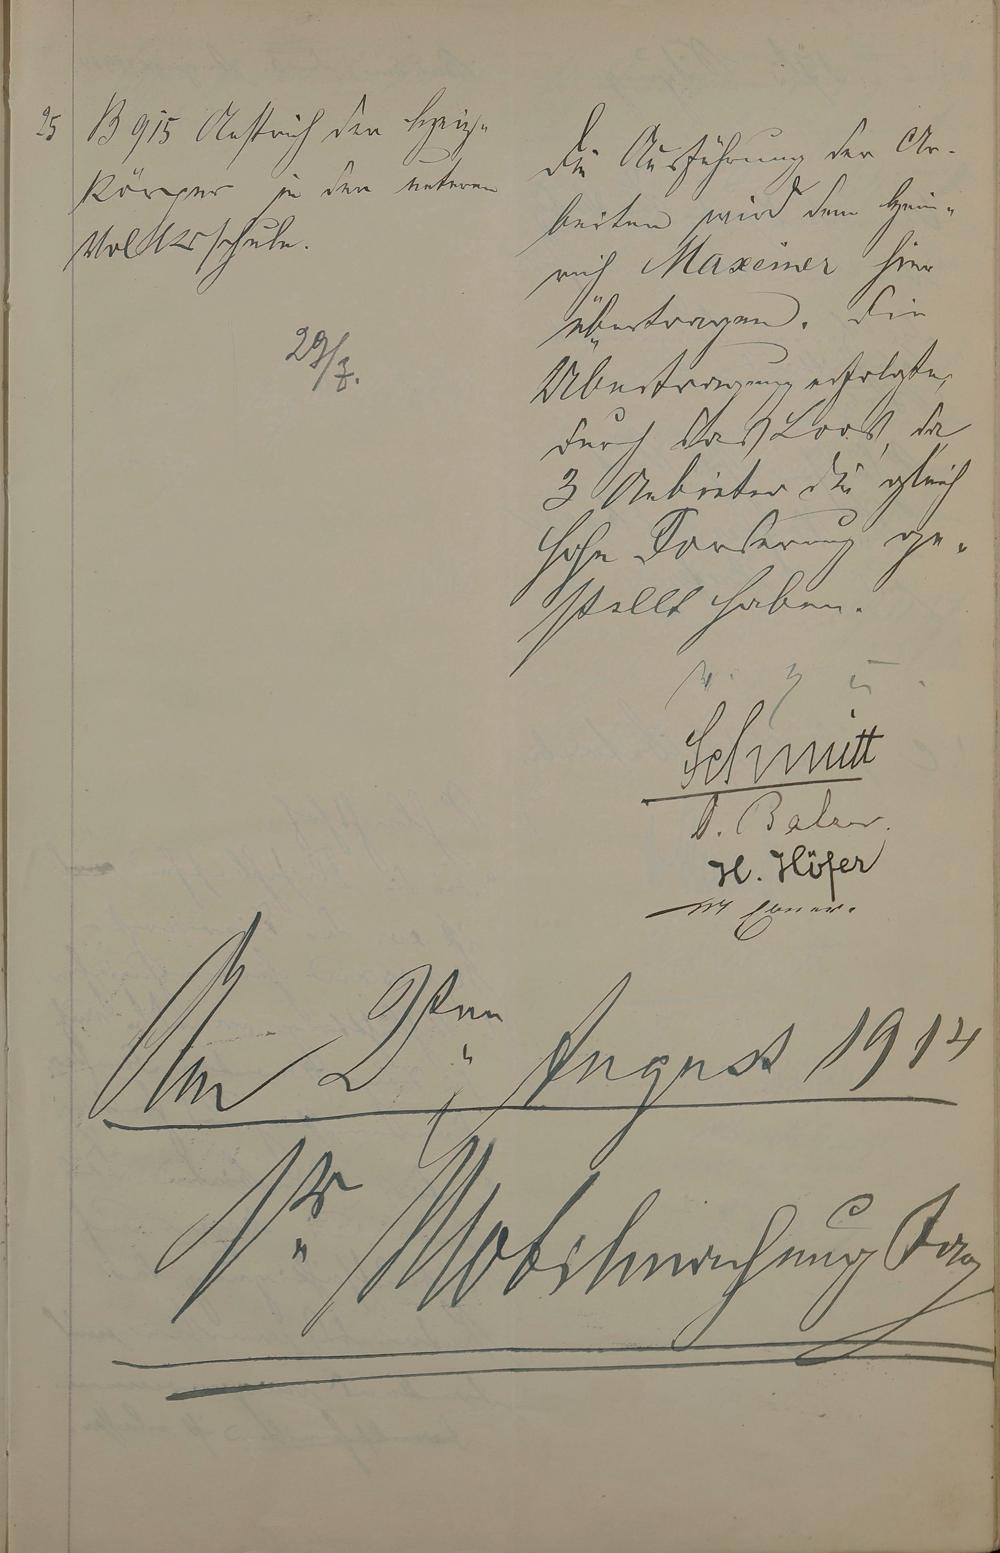 25 B 915 Anstrich der Heiz-
körper in der unteren
Volksschule.
29/7.
Die Ausführung der Ar-
beiten wird dem Hein-
rich Maxeiner hier
übertragen. Die
Übertragung erfolgte,
durch das Loos, da
3 Anbieter die gleich
hohe Forderung ge-
stellt haben.
Schmitt
Balzer.
H. Höfer
Ebner.
Am 2ten August 1914
1r Mobilmachung Tag